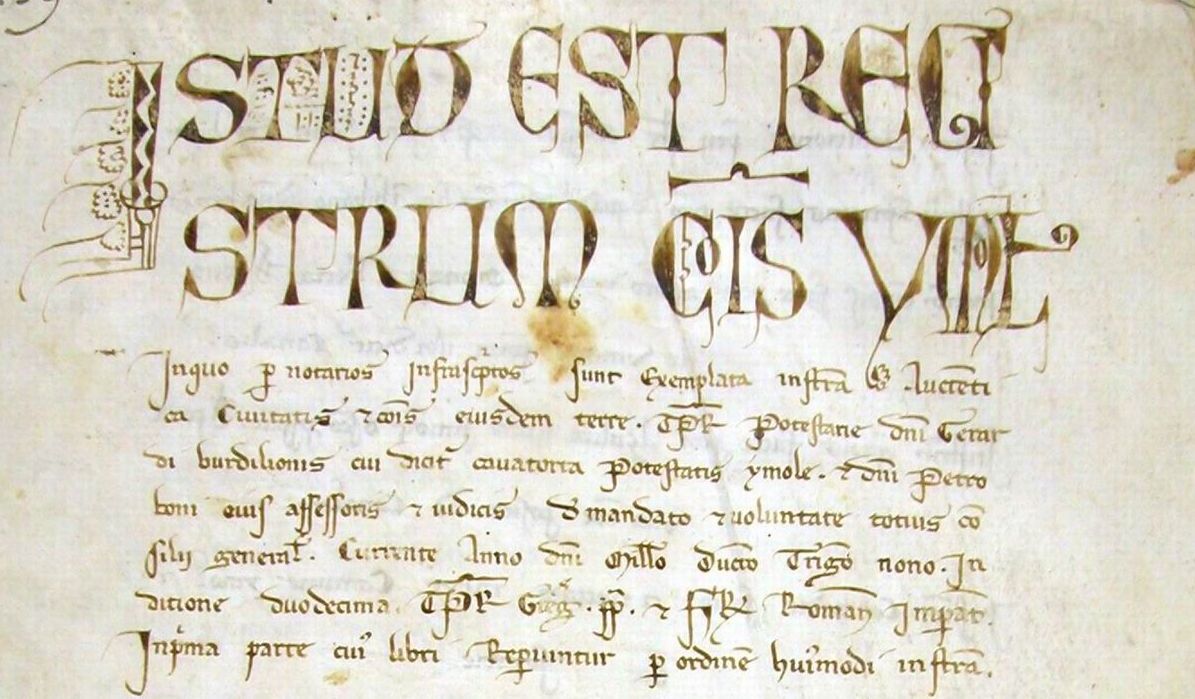 ISTUD EST REGI
STRUM COIS YMOL
In quo p notarios infrascptos sunt Exemplata instra & Auctenti
ca Civitatis & cois eiusdem terre. TPR Potestarie dni Gerar
di burdilionis cui dicit cavatorta Potestatis ymole. & dni Petro
boni eius assessoris & iudicis d mandato & voluntate totius co
silii general. Currente Anno dni Millo Ducto Trigo nono. In
ditione duodecima. TPR Greg. pp. & Roman Impat.
In pma parte cui libri Reperiuntur p ordine huimodi instra.